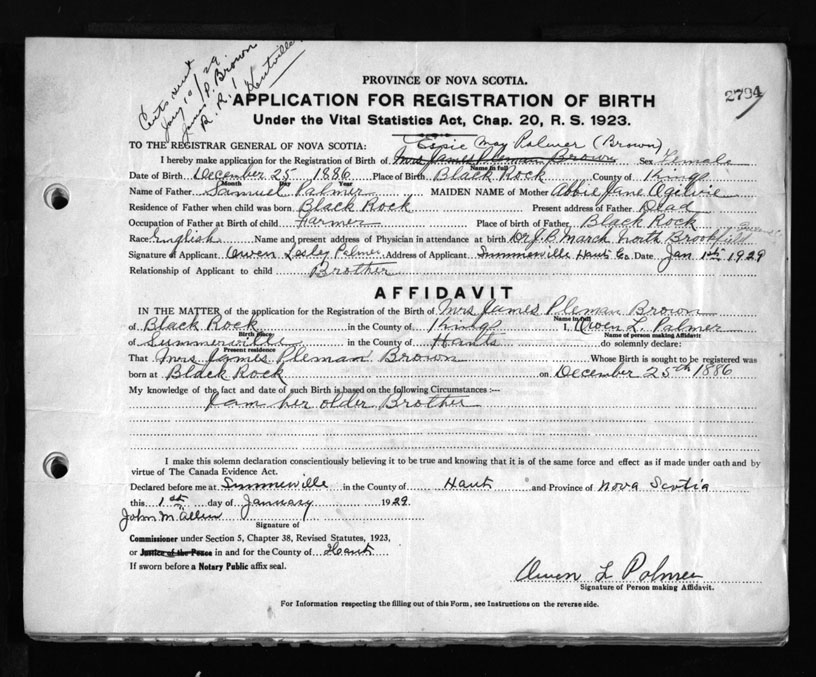 Certs sent
Jany 10/29
James P. Brown
R. R. 1
Kentville
PROVINCE OF NOVA SCOTIA.
2794
APPLICATION FOR REGISTRATION OF BIRTH
Under the Vital Statistics Act, Chap. 20, R. S. 1923.
TO THE REGISTRAR GENERAL OF NOVA SCOTIA: Espie May Palmer (Brown)
I hereby make application for the Registration of Birth of Mrs James Pleman Brown Sex Female
Name in full
Date of Birth December 25 1886 Place of Birth Black Rock County of Kings
Month Day Year
Name of Father Samuel Palmer MAIDEN NAME of Mother Abbie Jane Ogilvie
Residence of Father when child was born Black Rock Present address of Father Dead
Occupation of Father at Birth of child Farmer Place of birth of Father Black Rock
Race English Name and present address of Physician in attendance at birth Dr J. B. March North Brookfield
Signature of Applicant Owen Lesley Palmer Address of Applicant Summerville Hants Co. Date Jan 1st 1929
Relationship of Applicant to child Brother
AFFIDAVIT
IN THE MATTER of the application for the Registration of the Birth of Mrs James Pleman Brown
Name in full
of Black Rock in the County of Kings I, Owen L. Palmer
Birth place Name of person making Affidavit
of Summerville in the County of Hants do solemnly declare:
Present residence
That Mrs James Pleman Brown Whose Birth is sought to be registered was
born at Black Rock on December 25th 1886
My knowledge of the fact and date of such Birth is based on the following Circumstances :—
I am her older Brother
I make this solemn declaration conscientiously believing it to be true and knowing that it is of the same force and effect as if made under oath and by
virtue of The Canada Evidence Act.
Declared before me at Summerville in the County of Hants and Province of Nova Scotia
this 1st day of January 1929
John M Allen
Signature of
Commissioner under Section 5, Chapter 38, Revised Statutes, 1923,
or Justice of the Peace in and for the County of Hants
If sworn before a Notary Public affix seal.
Owen L Palmer
Signature of Person making Affidavit.
For Information respecting the filling out of this Form, see Instructions on the reverse side.